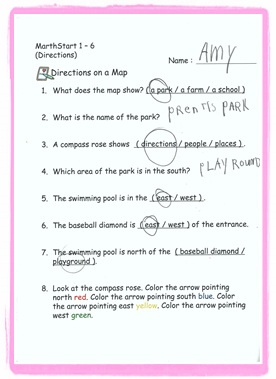 MarthStart 1 – 6
(Directions)
Name : AMY
Directions on a Map
1. What does the map show? (a park / a farm / a school)
2. What is the name of the park? PRENTIS PARK
3. A compass rose shows (directions / people / places).
4. Which area of the park is in the south? PLAY ROUND
5. The swimming pool is in the (east / west).
6. The baseball diamond is (east / west) of the entrance.
7. The swimming pool is north of the (baseball diamond /
playground).
8. Look at the compass rose. Color the arrow pointing
north red. Color the arrow pointing south blue. Color
the arrow pointing east yellow. Color the arrow pointing
west green.